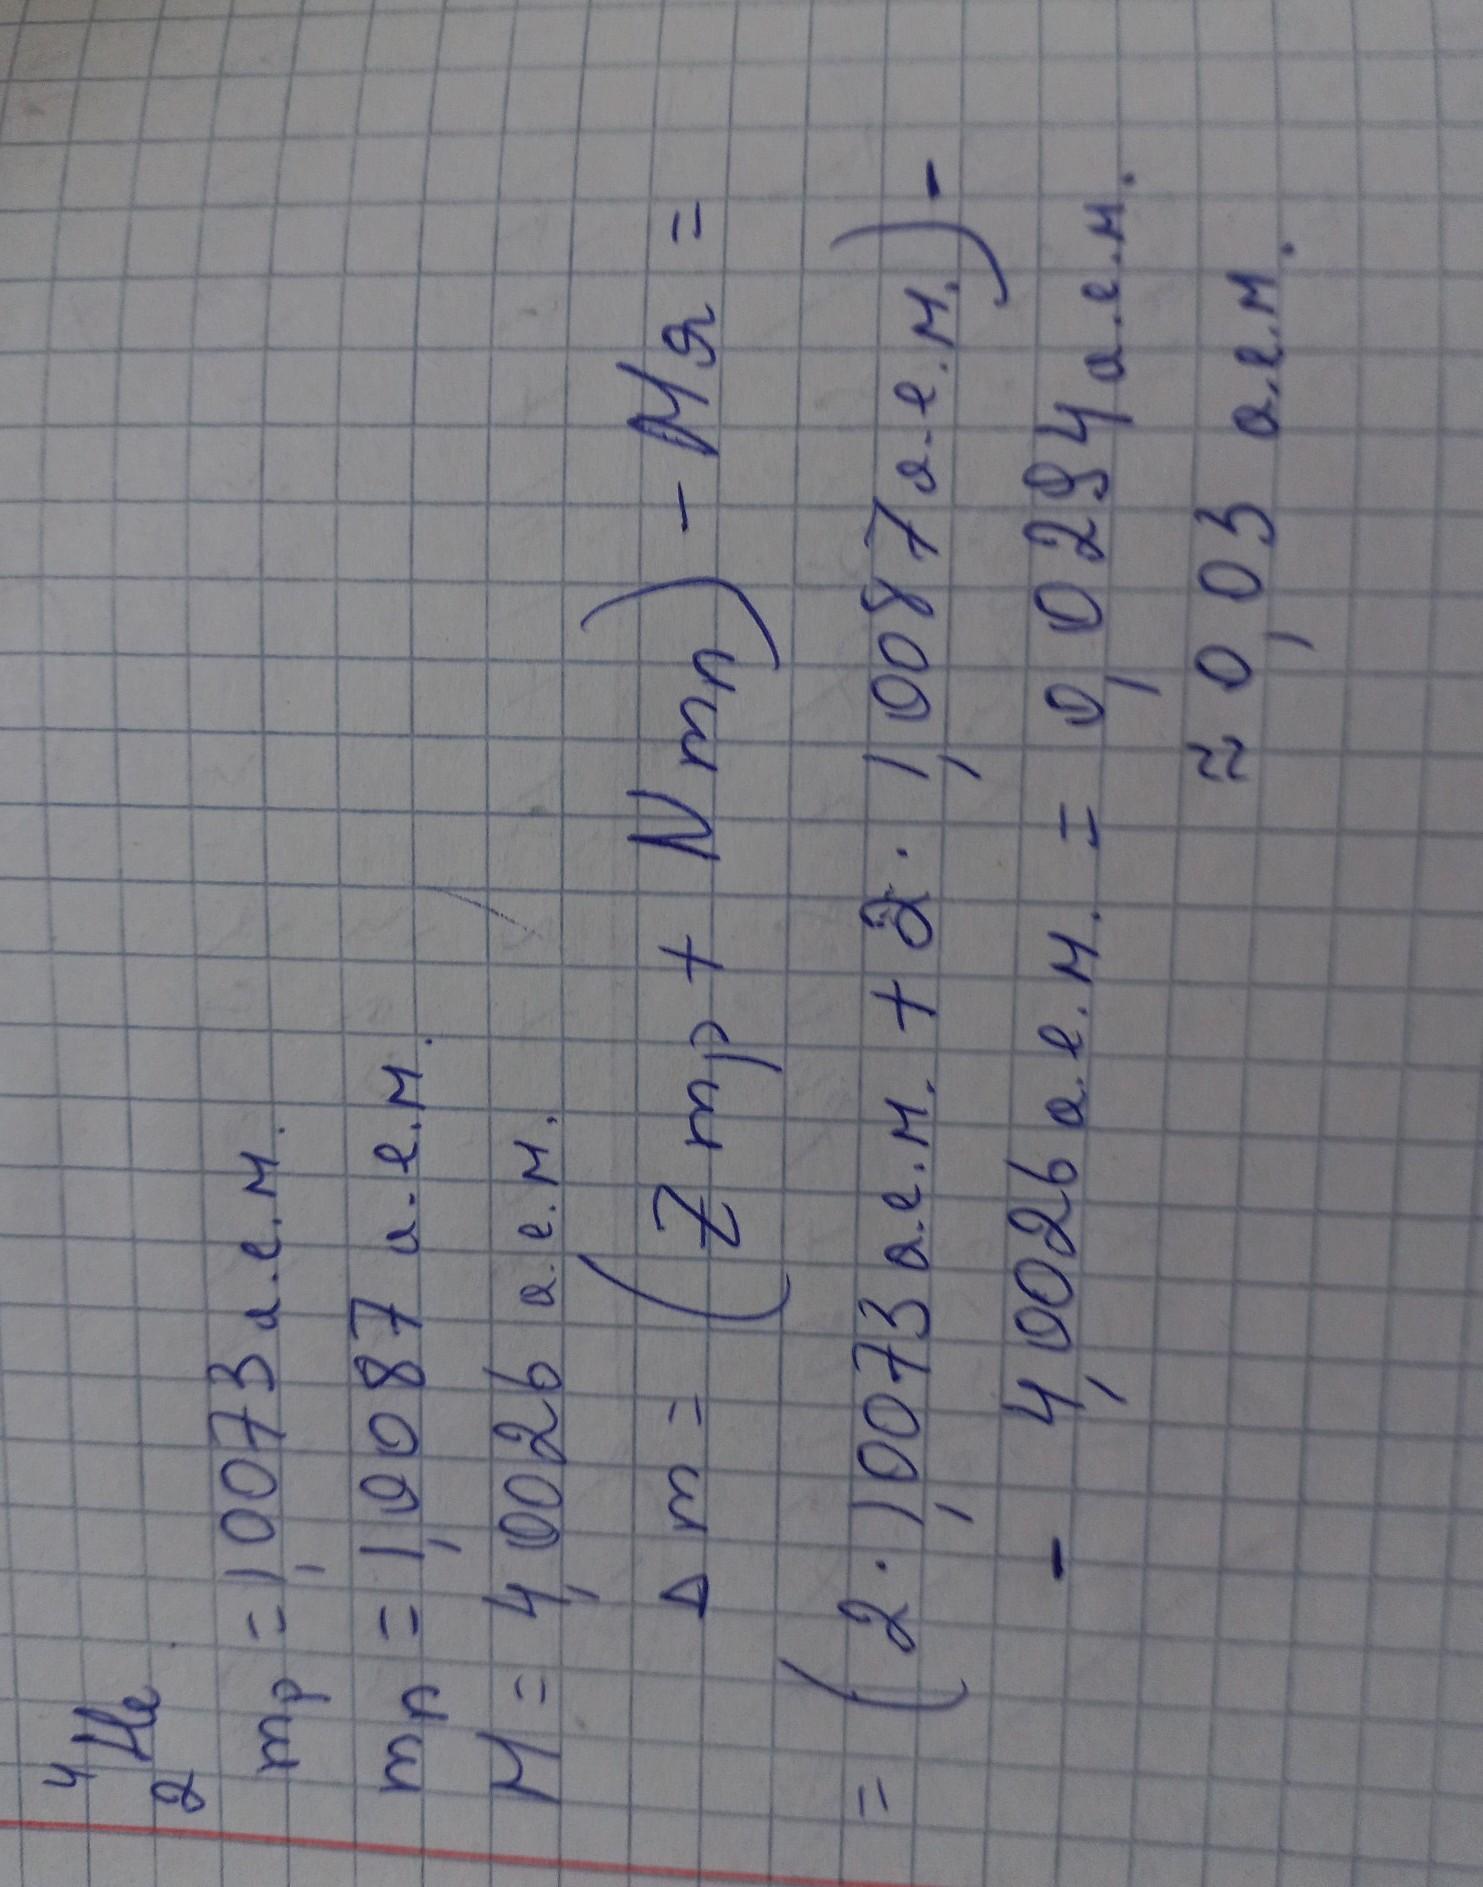 ⁴₂He
mp = 1,0073 а.е.м.
mn = 1,0087 а.е.м.
M = 4,0026 а.е.м.
Δm = (Zmp + Nmn) - Mя =
= (2·1,0073 а.е.м. + 2·1,0087 а.е.м.) -
- 4,0026 а.е.м. = 0,0294 а.е.м.
≈ 0,03 а.е.м.